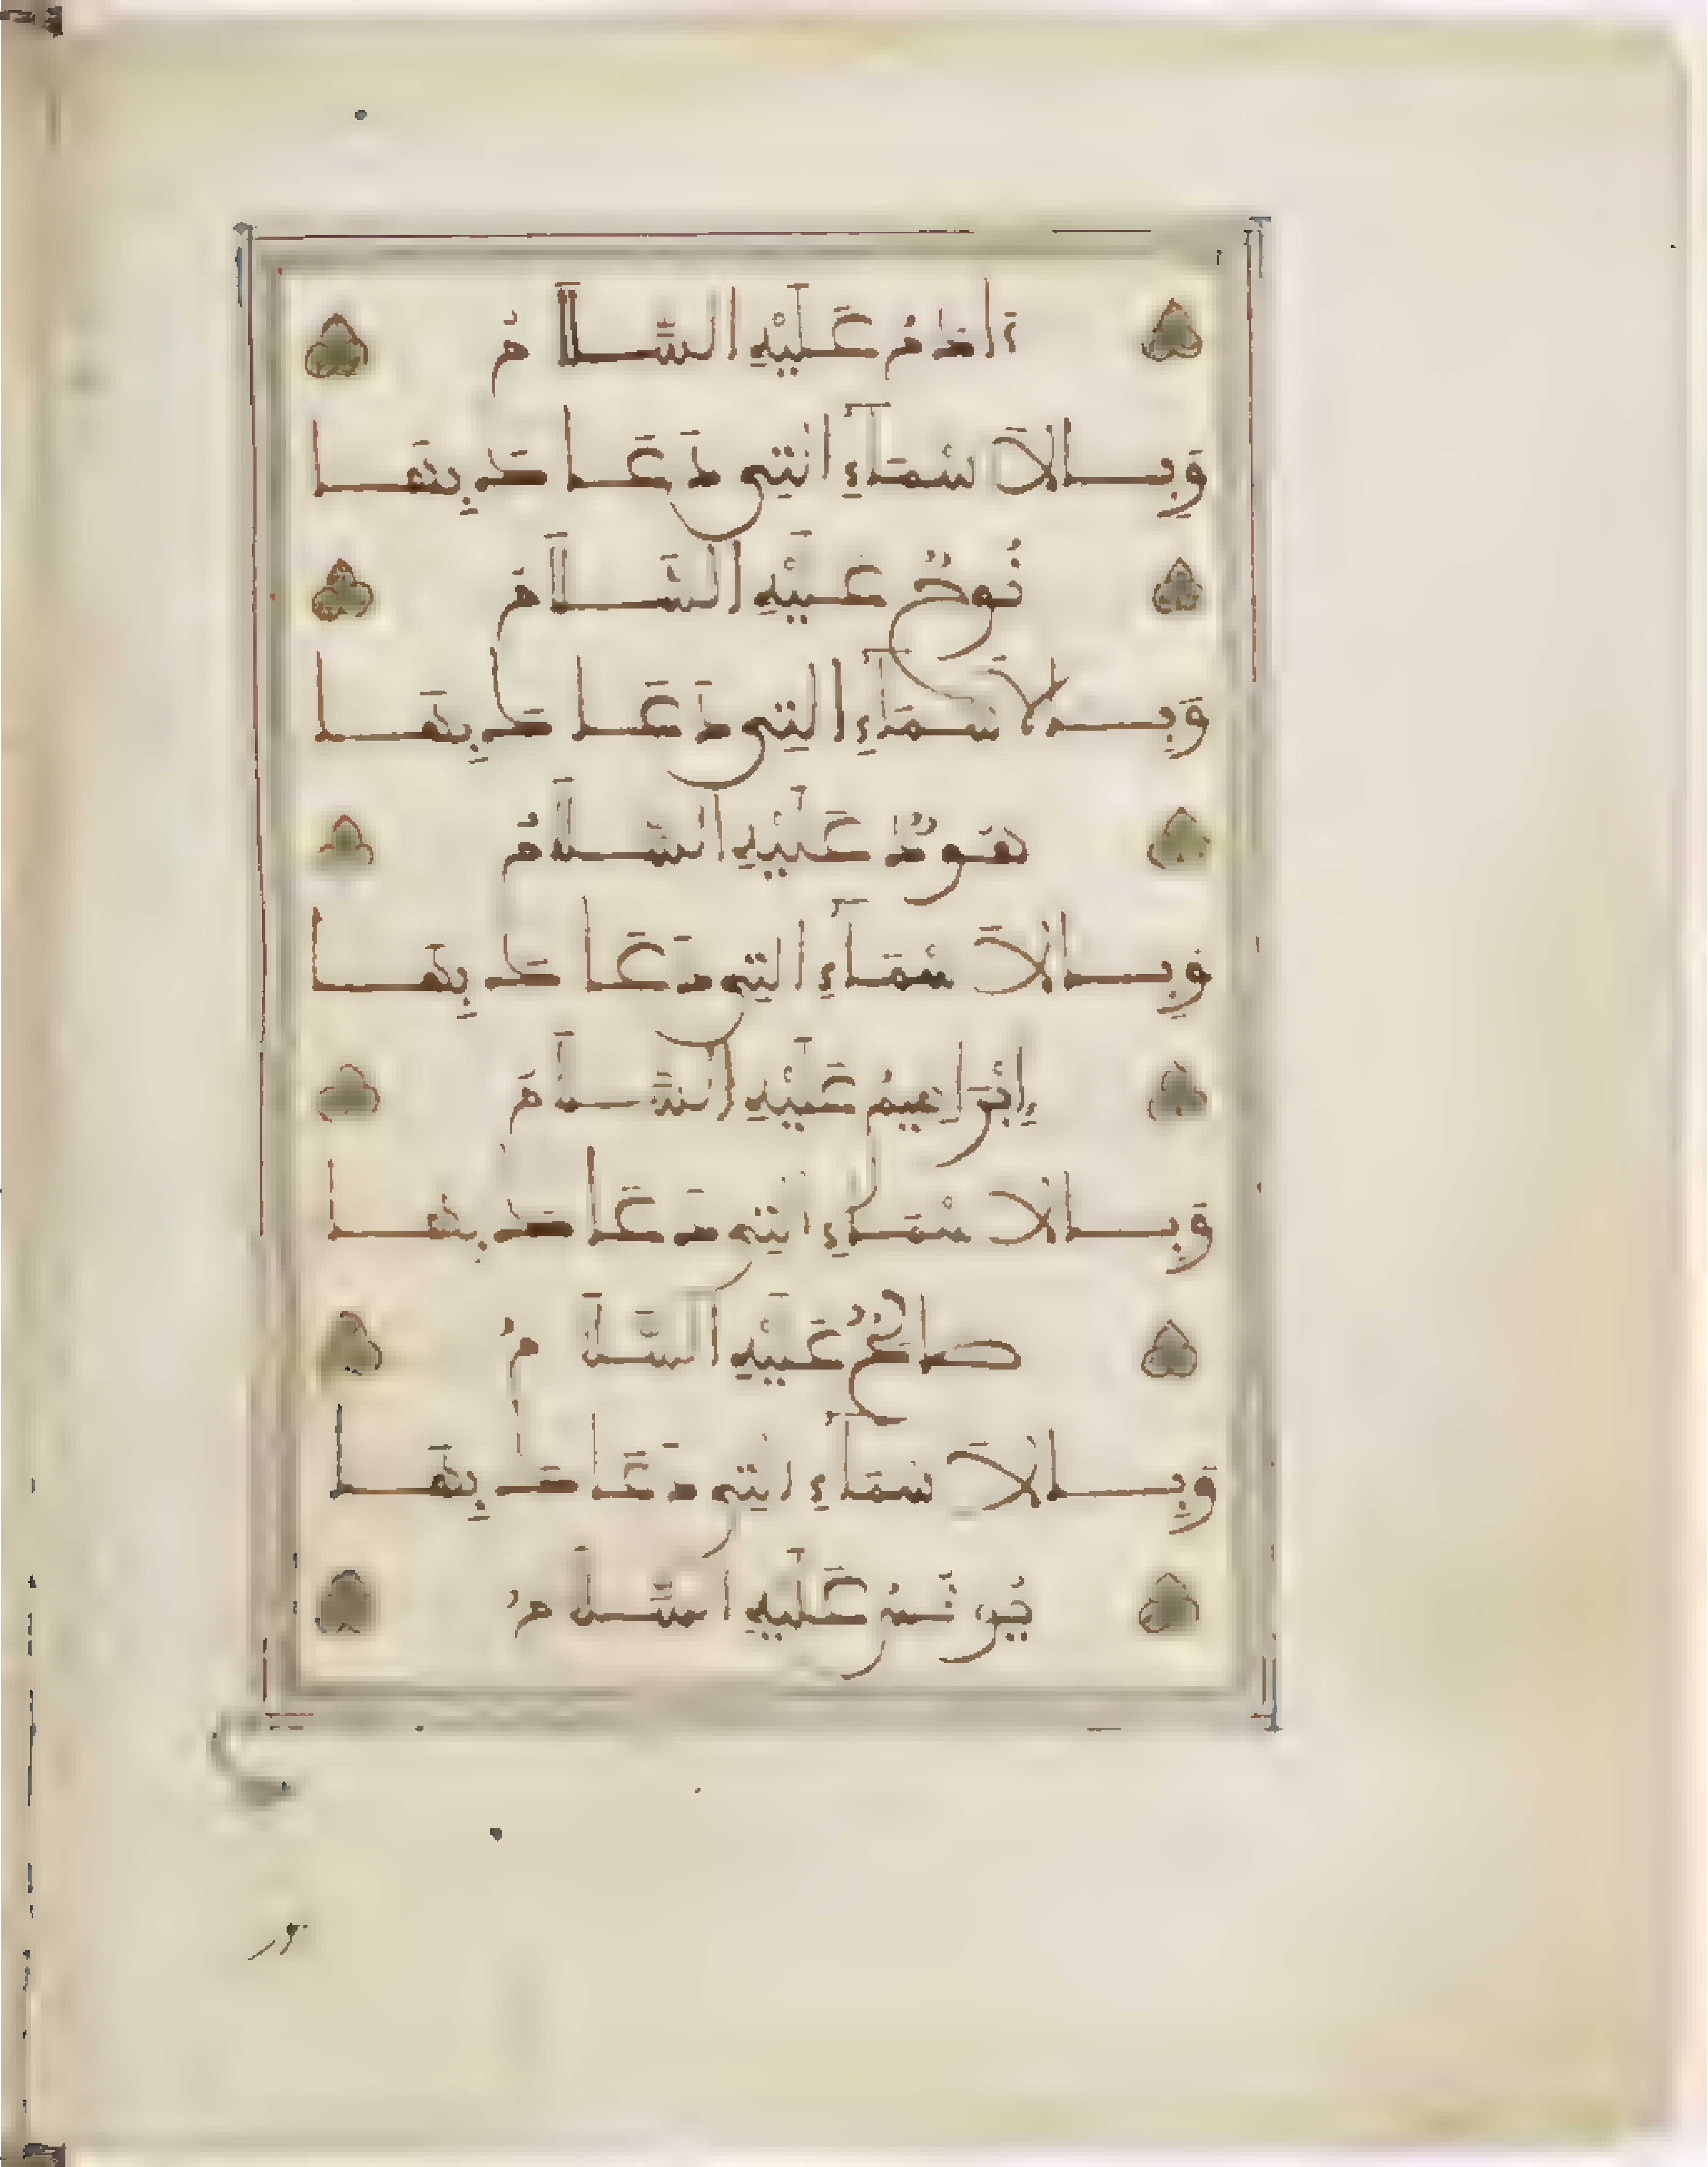 ءَادَمُ عَلَيْهِ السَّلَامُ
وَبِالَاسْمَآءِ التِي دَعَاكَ بِهَا
نُوحٌ عَلَيْهِ السَّلَامُ
وَبِالَاسْمَآءِ التِي دَعَاكَ بِهَا
هُودٌ عَلَيْهِ السَّلَامُ
وَبِالَاسْمَآءِ التِي دَعَاكَ بِهَا
إِبْرَاهِيمُ عَلَيْهِ السَّلَامُ
وَبِالَاسْمَآءِ التِي دَعَاكَ بِهَا
صَالِحٌ عَلَيْهِ السَّلَامُ
وَبِالَاسْمَآءِ التِي دَعَاكَ بِهَا
يُونُسُ عَلَيْهِ السَّلَامُ